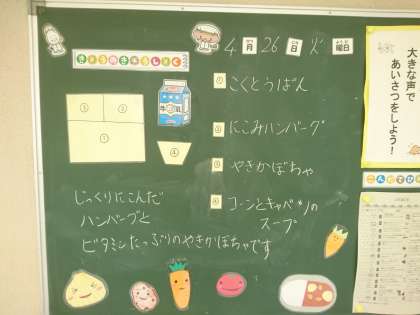 きょうのきゅうしょく
4月26日火曜日
牛乳
③
②
①
④
① こくとうぱん
② にこみハンバーグ
③ やきかぼちゃ
④ コーンとキャベツの
スープ
じっくりにこんだ
ハンバーグと
ビタミンたっぷりのやきかぼちゃです
大きな声で
あいさつをしよう!